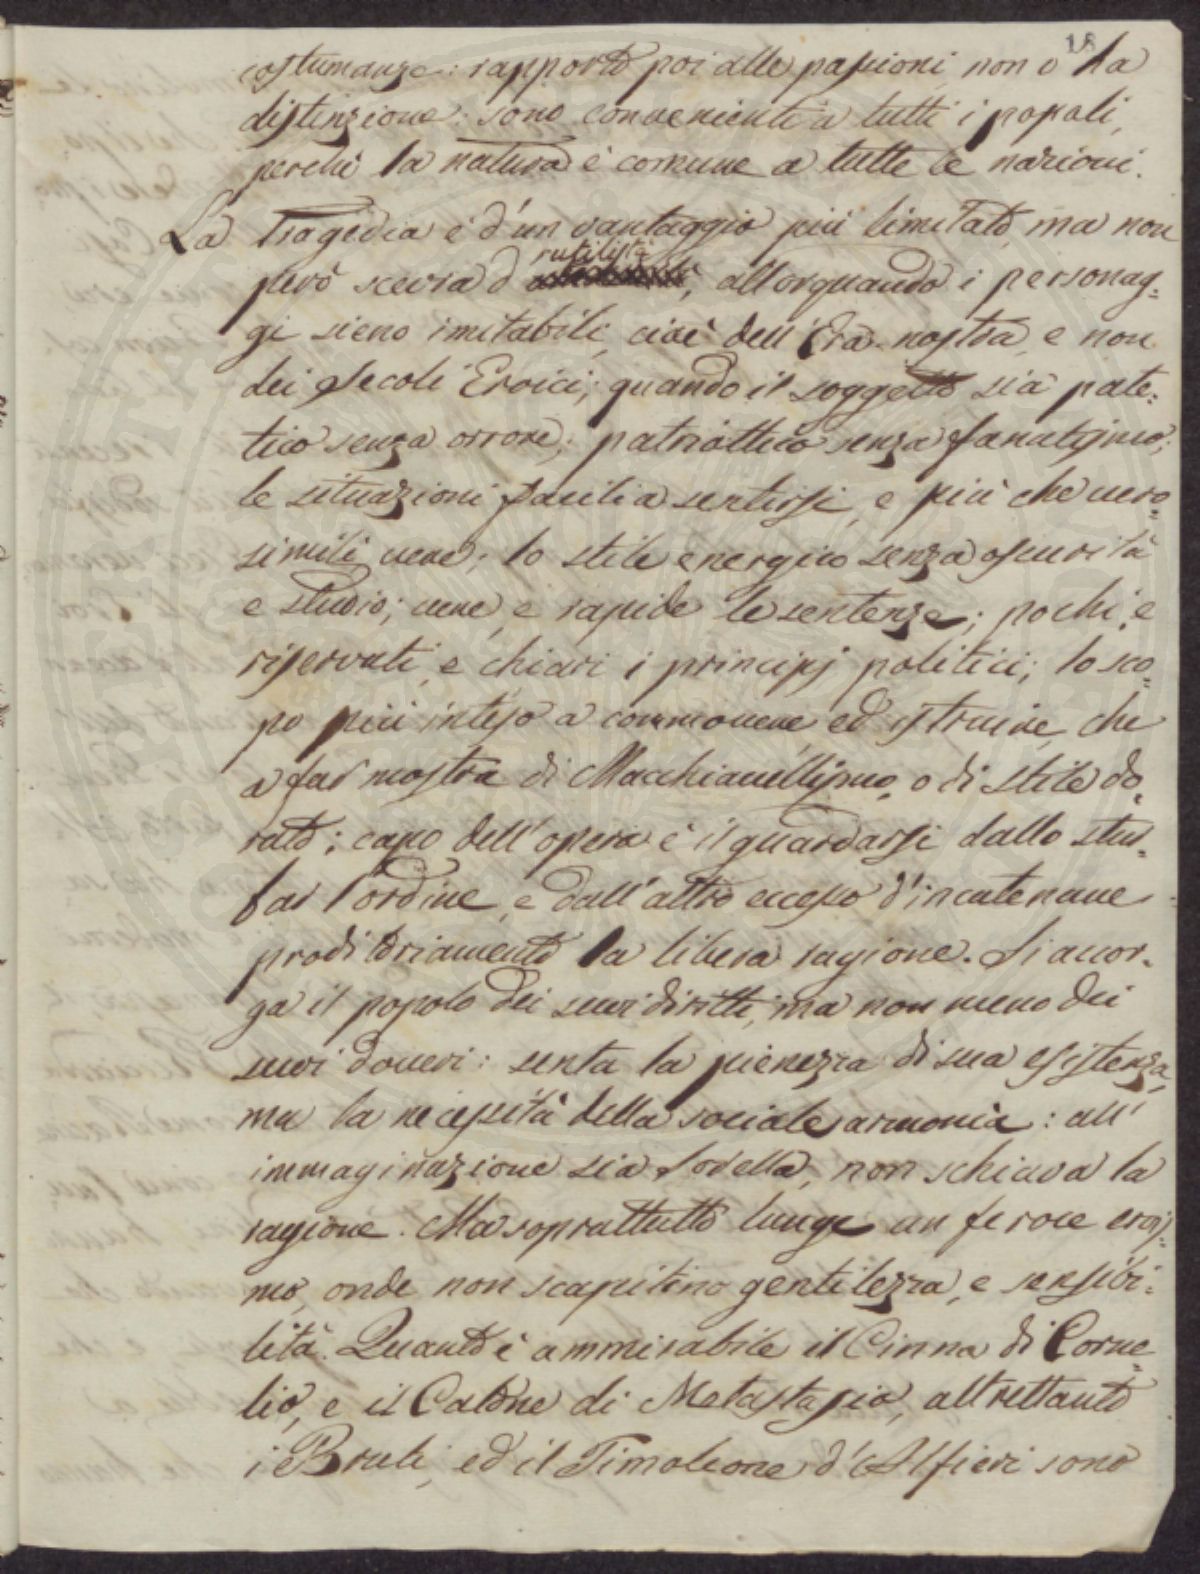 18
costumanze: rapporto poi alle passioni non v'ha
distinzione: sono convenienti a tutti i popoli,
perchè la natura è comune a tutte le nazioni.
La Tragedia è d'un vantaggio più limitato, ma non
però scevra d', allorquando i personag=
gi sieno imitabili, cioè dell'Era nostra, e non
dei Secoli Eroici; quando il soggetto sia pate=
tico senza orrore; patriottico senza fanatismo;
le situazioni facili a sentirsi, e più che vero=
simili, vere; lo stile energico senza oscurità
e studio; vere, e rapide le sentenze; pochi, e
riservati, e chiari i principj politici; lo sco=
po più inteso a commovere ed istruire, che
a far mostra di Macchiavellismo, o di stile do=
rato; capo dell'opera è il guardarsi dallo stur=
bar l'ordine, e dall'altro eccesso d'incatenare
proditoriamente la libera ragione. Si accor=
ga il popolo dei suoi diritti, ma non meno dei
suoi doveri: senta la pienezza di sua esistenza,
ma la necessità della sociale armonia: all'
immaginazione sia sorella, non schiava la
ragione. Ma soprattutto lunge un feroce erois=
mo, onde non scapitino gentilezza, e sensibi=
lità. Quanto è ammirabile il Cinna di Corne=
lio, e il Catone di Metastasio, altrettanto
i Bruti, ed il Timoleone d'Alfieri sono